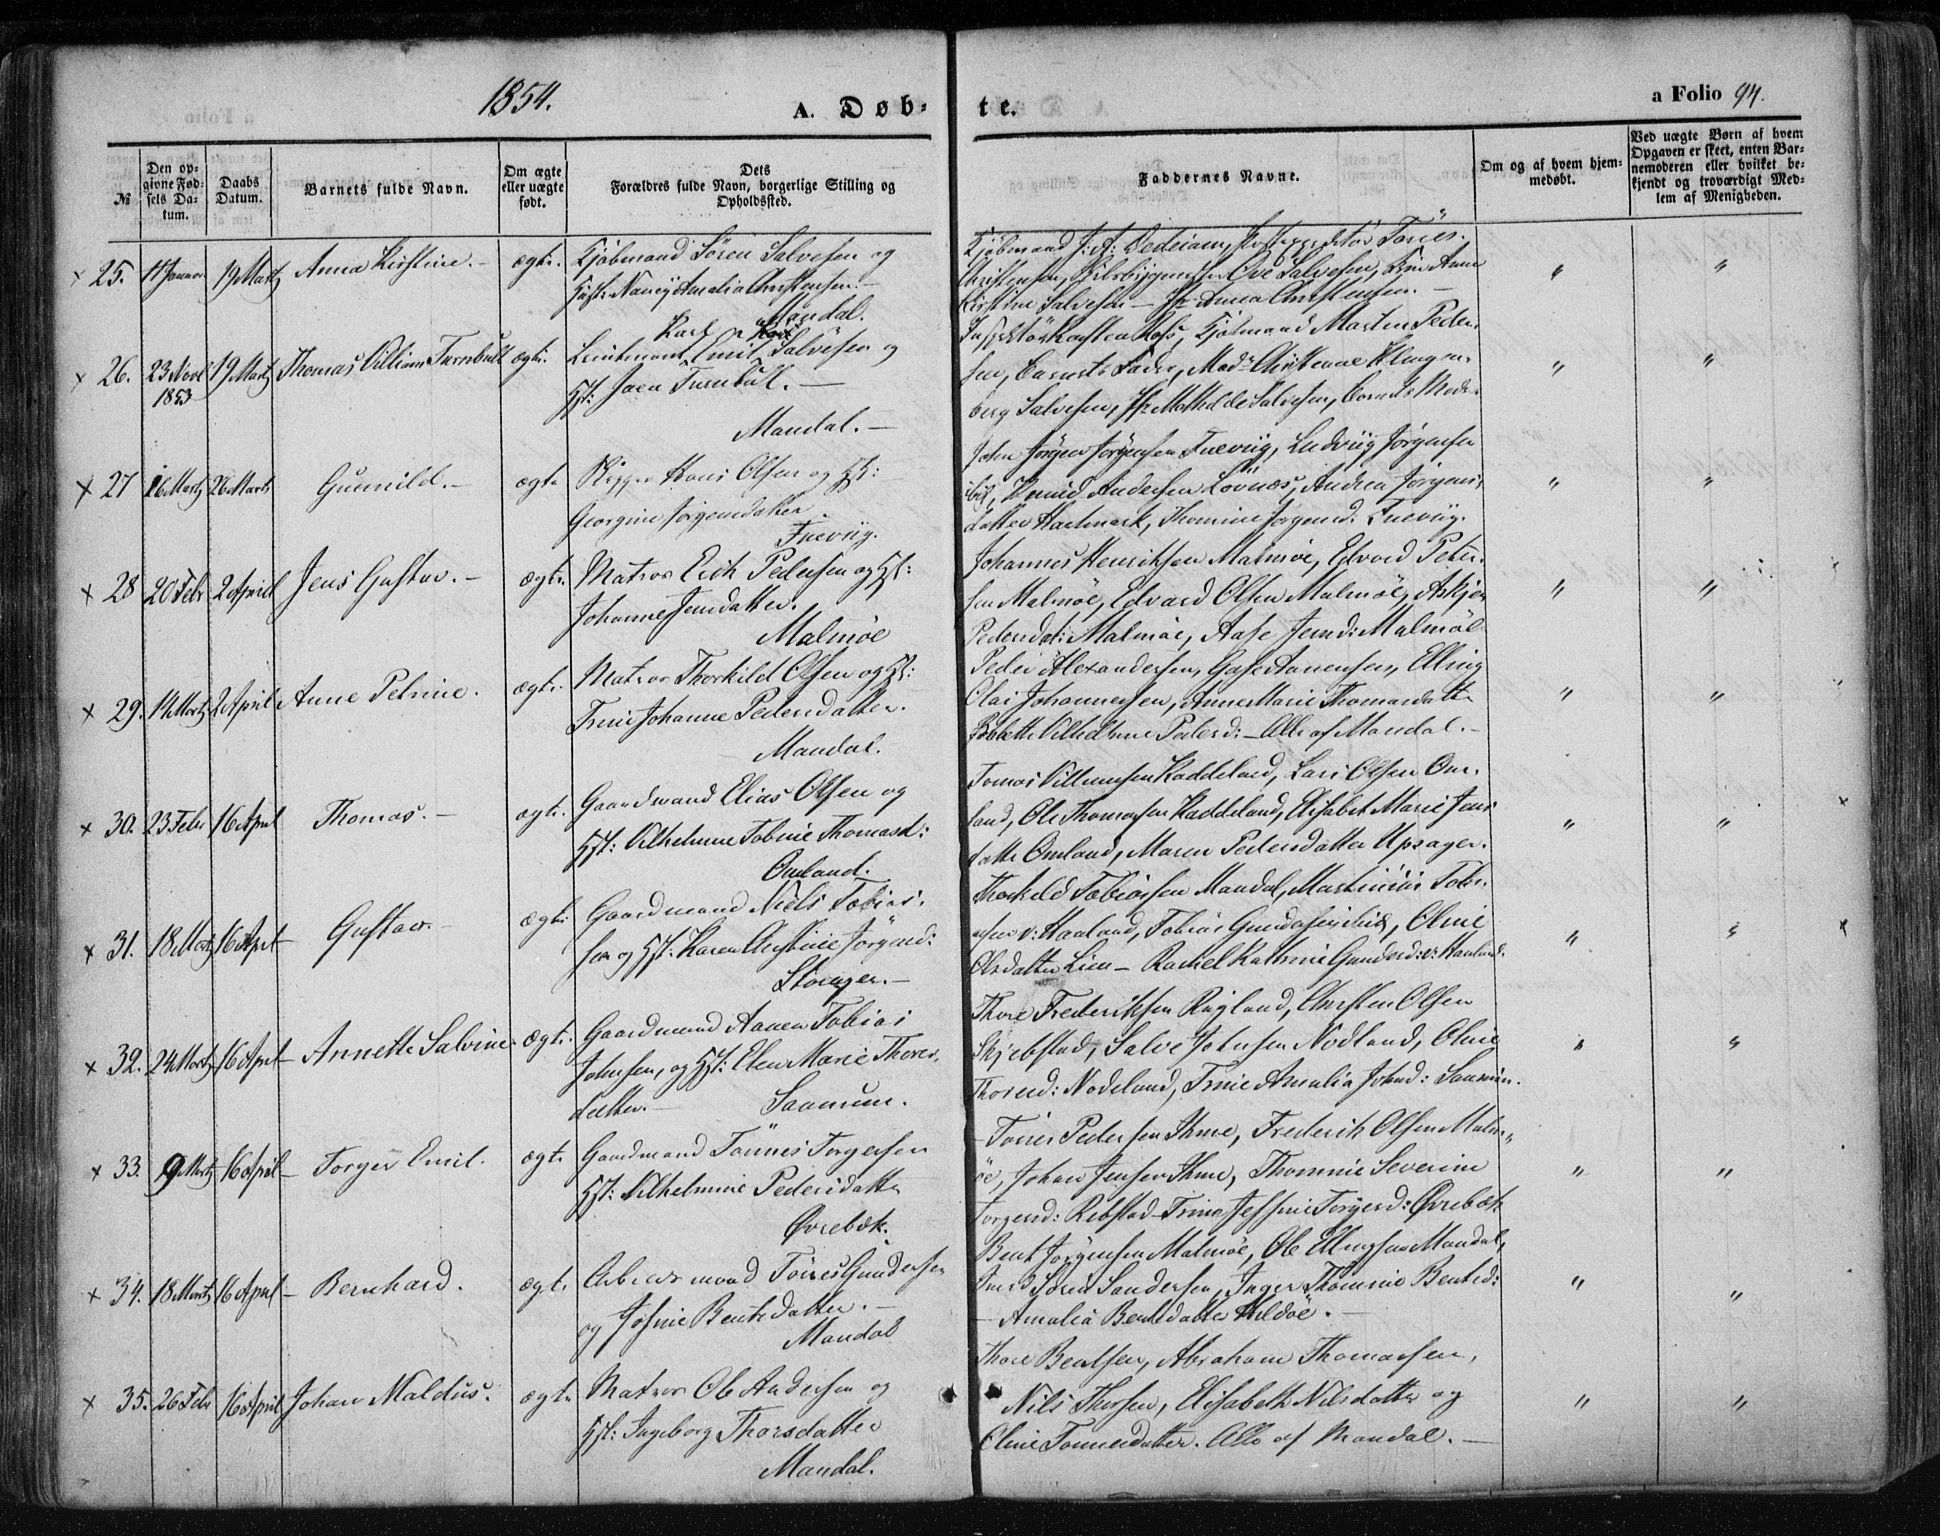 1854.
A. Døb-
te.
a Folio 94.
№
Den op-
givne Fød-
sels Da-
tum.
Daabs
Datum.
Barnets fulde Navn.
Om ægte
eller uægte
født.
Dets
Forældres fulde Navn, borgerlige Stilling og
Opholdssted.
Faddernes Navne.
Om og af hvem hjem-
medøbt.
Ved uægte Børn af hvem
Opgaven er skeet, enten Bar-
nemoderen eller hvilket be-
kjendt og troværdigt Med-
lem af Menigheden.
× 25. 11 Januar 19 Martz Anna Kirstine. ægte.
Kjøbmand Sören Salvesen og
Nancy Amalia Christensen.
Mandal.
Kjøbmand Tørres
Christensen, Ove Salvesen, Anne
Kirstine Salvesen — Anna Christensen. —
" "
× 26. 23 Novb 1853 19 Martz Thomas Villiam Turnbull ægte.
Karl
Lieutenant Emil Salvesen og
Hst: Jaen Turnbull. —
Mandal. —
Kjøbmand Marten Peder-
sen, Barnets Fader, Mad:
berg Salvesen, Mathilde Salvesen, Barnets Moder
" "
× 27 16 Martz 26 Marts Gunnild. — ægte
Skipper Hans Olsen og Hst:
Georgine Jørgensdatter
Fuevig.
John Jørgen Jørgensen Fuevig, Ludvig Jørgensen
ibid, Andersen Lövnæs, Andrea Jørgens-
datter Hartmark, Thomine Jørgensd. Fuevig.
" "
× 28 20 Febr 2 April Jens Gustav. — ægte.
Matros Erik Pedersen og Hst:
Johanne Jensdatter.
Malmøe
Johannes Henriksen Malmøe, Edvard Peter-
sen Malmöe, Edvard Olsen Malmöe, Askjer
Pedersdt: Malmöe, Aase Jensd: Malmöe
" "
× 29. 14 Martz 2 April Anne Petrine. ægte.
Matros Thorkild Olsen og Hst:
Trine Johanne Pedersdatter.
Mandal.
Peder Alexandersen, Aanensen, Elling
Olai Johannesen, Anne Marie Thomasdatter
Vilhelmine Pedersd: — Alle af Mandal. —
" "
× 30. 23 Febr 16 April Thomas. — ægte.
Gaardmand Elias Olsen og
Hst: Vilhelmine Tobine Thomasd:
Omland.
Tomas Villumsen Haddeland, Lars Olsen Om-
land, Ole Thomassen Haddeland, Elisabet Marie Jens
datter Omland, Maren Pedersdatter Upsager.
" "
× 31. 18 Martz 16 April Gustav. ægte.
Gaardmand Niels Tobias-
sen og Hst: Karen Christine Jörgensd:
Thorkild Tobiassen Mandal, Martinius Tobi-
asen v: Haaland, Tobias Gundersen ibid, Oline
Olsdatter Lien — Rachel Kathrine Gundersd: v: Haaland.
" "
× 32. 24 Martz 16 April Annette Salvine. ægte.
Gaardmand Aanen Tobias
Johnsen, og Hst: Elen Marie Thores-
datter. — Saanum.
Thore Frederiksen Rugland, Christen Olsen
Skjebstad, Salve Johnsen Nodland, Oline
Thoresd: Nodeland, Trine Amalia Johnsd: Saanum.
" "
× 33. 9 Martz 16 April Torger Emil. ægte.
Gaardmand Tönnes Torgersen
Hst: Vilhelmine Pedersdatter
Øvrebæk.
Tørres Pedersen Ihme, Frederik Olsen Malm-
öe, Johan Jensen Ihme, Thomine Severine
Torgersd: Rebstad — Trine Jessine Torgersd: Øvrebæk
" "
× 34. 18 Martz 16 April Bernhard. ægte.
Arbeidsmand Törres Gundersen
og Josine Bentsdatter. —
Mandal
Bent Jörgensen Malmöe, Ole Ellingsen Mandal,
Sören Sandersen, Inger Thomine Bentsd:
— Amalia Bentsdatter Hildöe. —
" "
× 35. 26 Febr 16 April Johan Maldus. ægte.
Matros Ole Andersen og
Hst: Ingeborg Thorsdatter
Mandal.
Thore Bentsen, Abraham Thomassen,
Nils Thorsen, Elisabeth Nilsdatter og
Oline Tønnesdatter. Alle af Mandal. —
" "